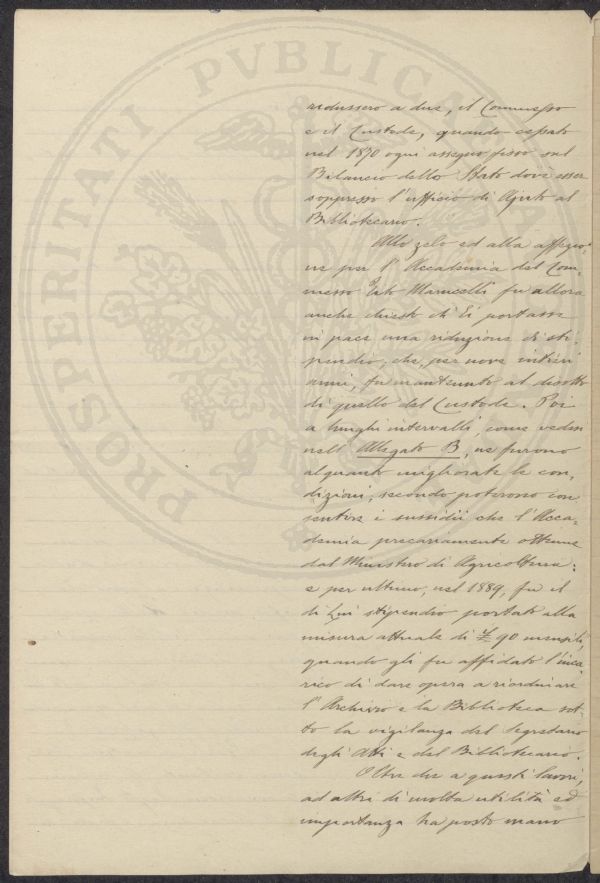 PROSPERITATI PVBLICAE A
ridussero a due, il Commesso
e il Custode, quando cessato
nel 1870 ogni assegno fisso sul
Bilancio dello Stato dovè esser
soppresso l'ufficio di Ajuto al
Bibliotecario.
Allo zelo ed alla affezio-
ne per l'Accademia del Com-
messo Marucelli fu allora
anche chiesto ch'Ei portasse
in pace una riduzione di sti-
pendio, che, per nove intieri
anni, fu mantenuto al disotto
di quello del Custode. Poi
a lunghi intervalli, come vedesi
nell'Allegato B, ne furono
alquanto migliorate le con-
dizioni, secondo poterono con
sentire i sussidii che l'Acca-
demia precariamente ottenne
dal Ministero di Agricoltura:
e per ultimo, nel 1889, fu il
di Lui stipendio portato alla
misura attuale di £ 90 mensili,
quando gli fu affidato l'inca-
rico di dare opera a riordinare
l'Archivio e la Biblioteca sot-
to la vigilanza del Segretario
degli Atti e del Bibliotecario.
Oltre che a questi lavori,
ad altri di molta utilità ed
importanza ha posto mano